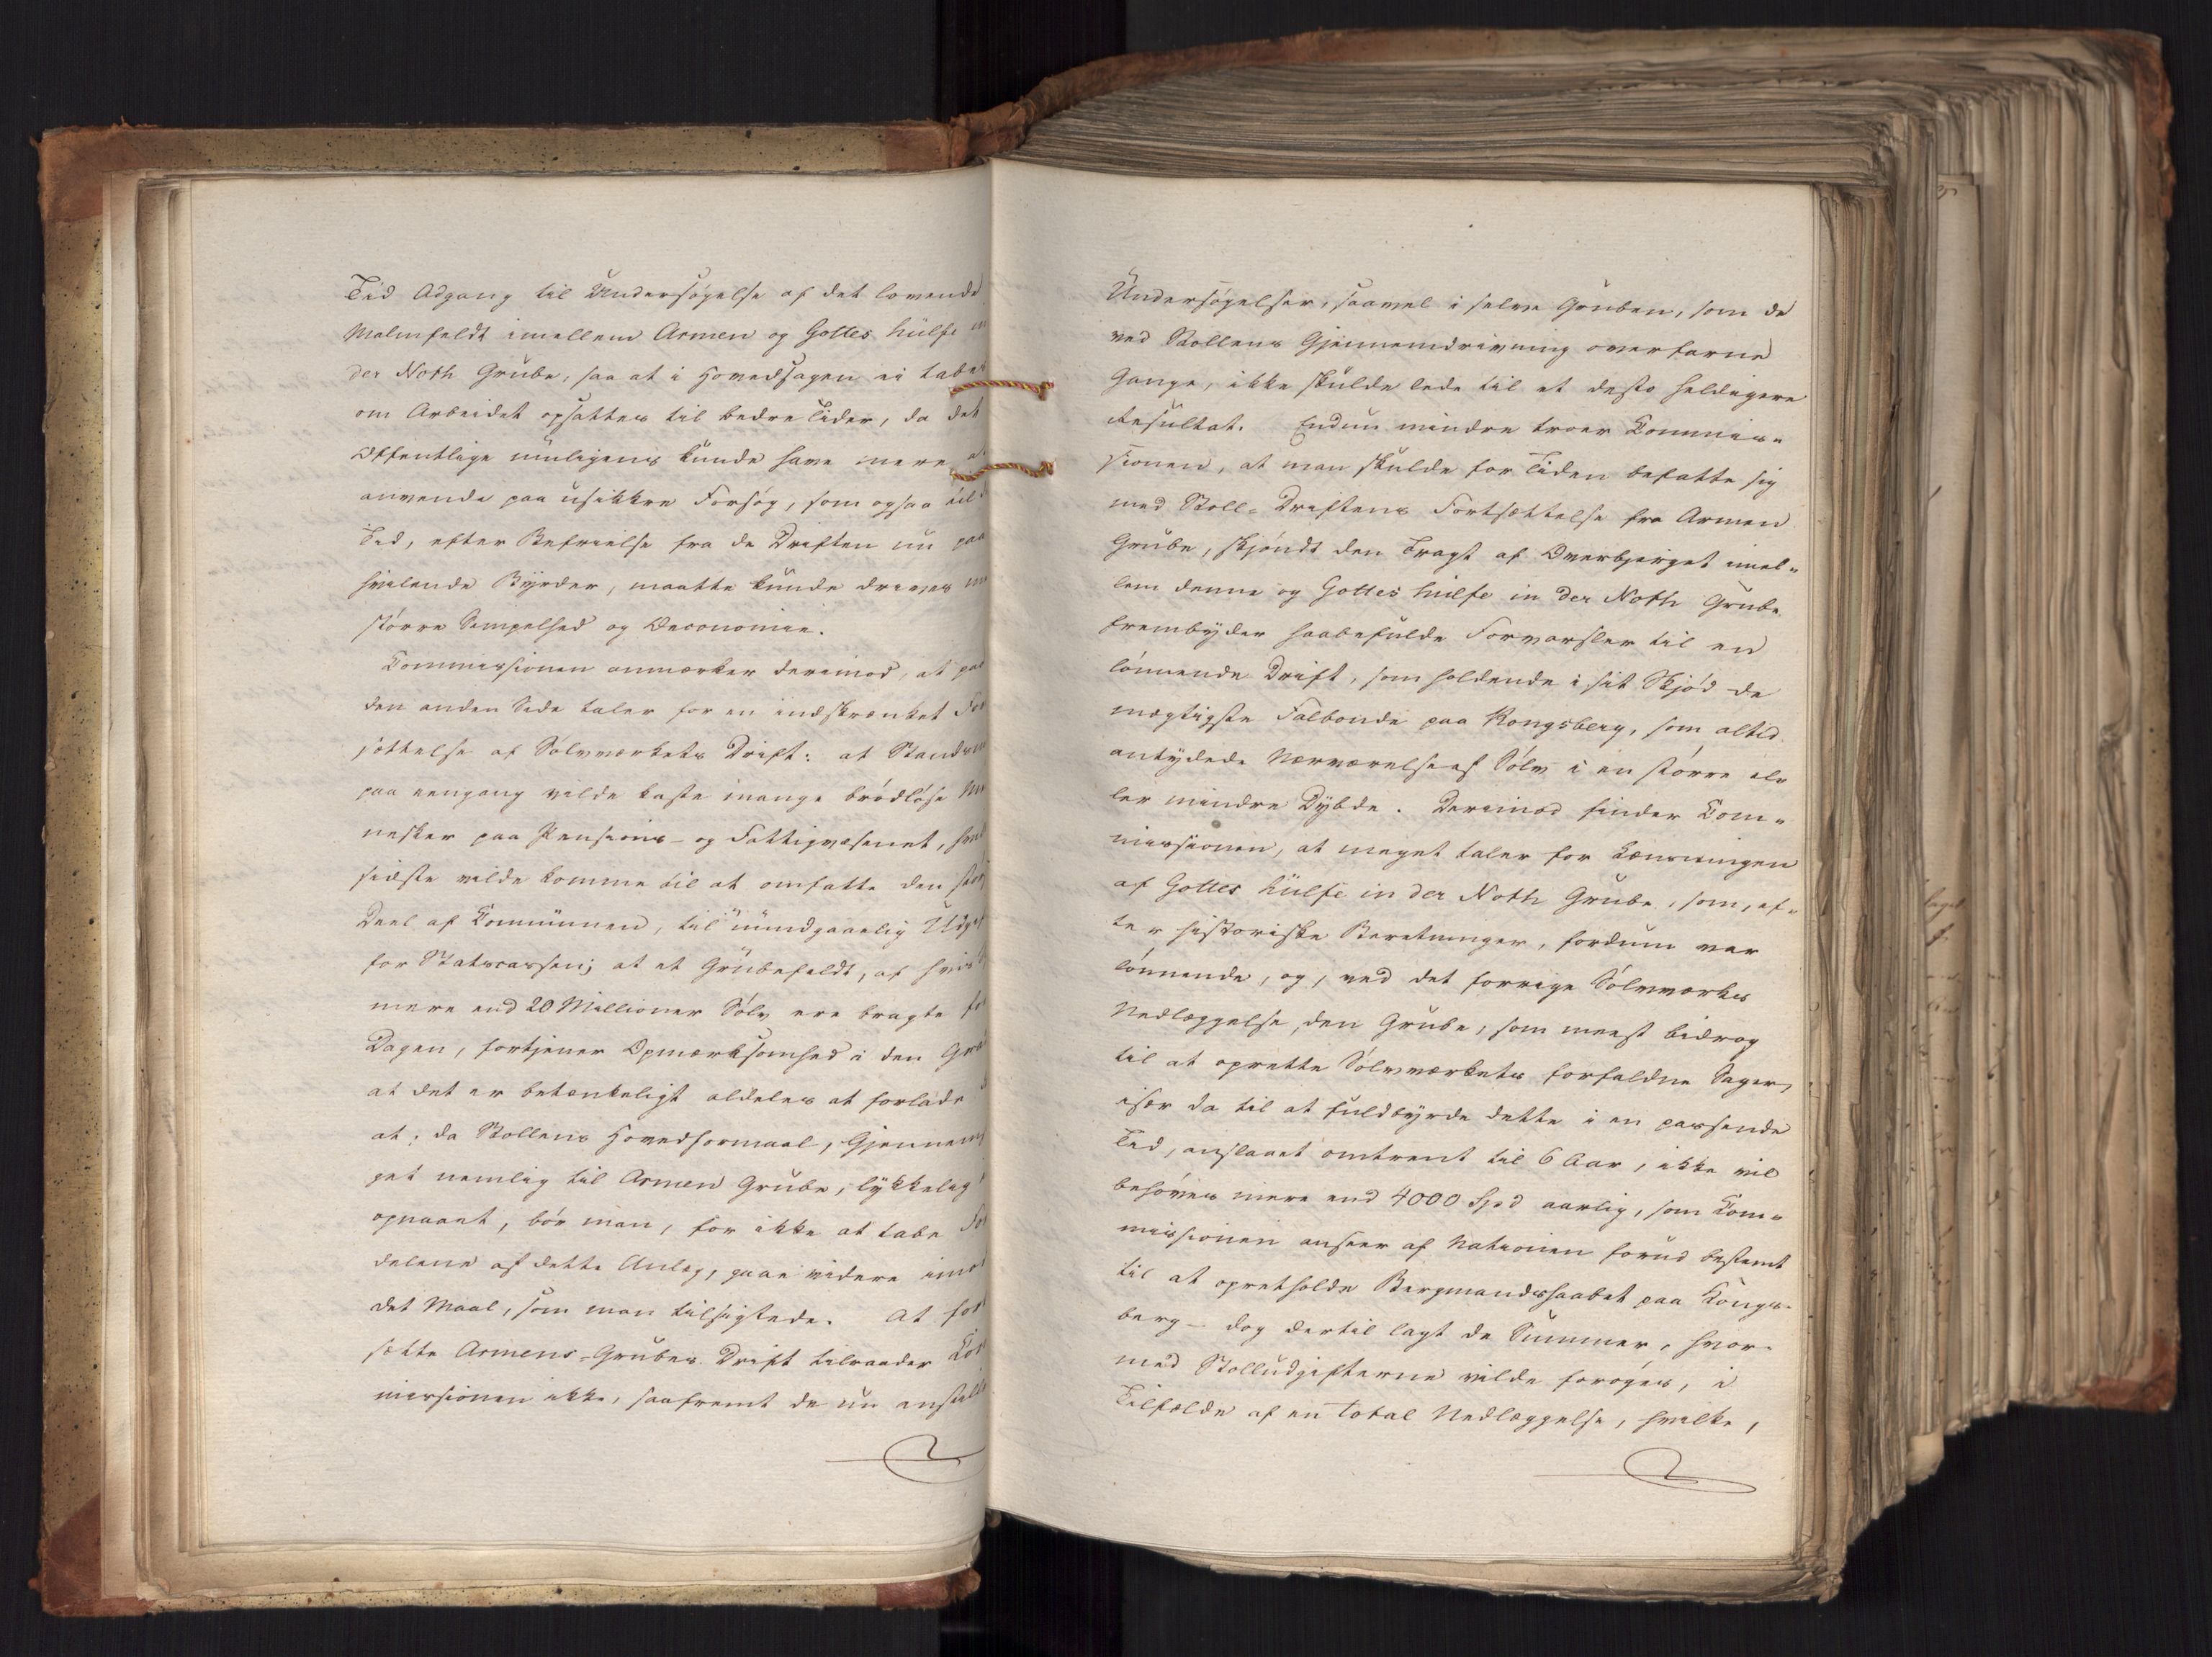 Tid Adgang til Undersøgelse af det lovende
Malmfeldt imellem Armen og Gottes Hülfe in
der Noth Grube, saa at i Hovedsagen ei tabes
om Arbeidet opsattes til bedre Tider, da det
Offentlige muligens kunde have mere at
anvende paa usikkre Forsøg, som ogsaa til
Tid, efter Befrielse fra de Driften nu paa
hvilende Byrder, maatte kunde drives
større Simpelhed og Oeconomie.
Commissionen anmærker derimod, at paa
den anden Side taler for en indskrænket For
sættelse af Sølvværkets Drift: at Stands
paa eengang vilde kaste mange brødløse
nesker paa Pensions- og Fattigvæsenet,
sidste vilde komme til at omfatte den
Deel af Communen, til uundgaaelig
for Statscassen; at et Grubefeldt, af hvis
mere end 20 Millioner Sølv ere bragte for
Dagen, fortjener Opmærksomhed i den Grad
at det er betænkeligt aldeles at forlade
at, da Stollens Hovedformaal, Gjennem
get nemlig til Armen Grube, lykkelig
opnaaet, bør man, for ikke at tabe For
delene af dette Anlæg, gaae videre imod
det Maal, som man tilsigtede. At for
sætte Armens-Grubes Drift tilraader Com
missionen ikke, saafremt de nu anstillede
Undersøgelser, saavel i selve Gruben, som de
ved Stollens Gjennemdrivning overfarne
Gange, ikke skulde lede til et desto heldigere
Resultat. Endnu mindre troer Commis=
sionen, at man skulde for Tiden befatte sig
med Stoll-Driftens Fortsættelse fra Armen
Grube, skjøndt den Tragt af Overbjerget imel=
lem denne og Gottes Hülfe in der Noth Grube
frembyder haabefulde Forvarsler til en
lønnende Drift, som holdende i sit Skjød de
mægtigste Falbonde paa Kongsberg, som altid
antydede Nærværelse af Sølv i en større el=
ler mindre Dybde. Derimod finder Com=
missionen, at meget taler for Lænsningen
af Gottes Hülfe in der Noth Grube, som, ef=
ter historiske Beretninger, fordum var
lønnende, og, ved det forrige Sølvværks
Nedlæggelse, den Grube, som meest bidrog
til at oprette Sølvværkets forfaldne Sager,
især da til at fuldbyrde dette i en passende
Tid, anslaaet omtrent til 6 Aar, ikke vil
behøves mere end 4000 Spd aarlig, som Com=
missionen anseer af Nationen forud bestemt
til at opretholde Bergmandskabet paa Kongs-
berg - dog dertil lagt de Summer, hvor-
med Stolludgifterne vilde forøges, i
Tilfælde af en total Nedlæggelse, hvilke,